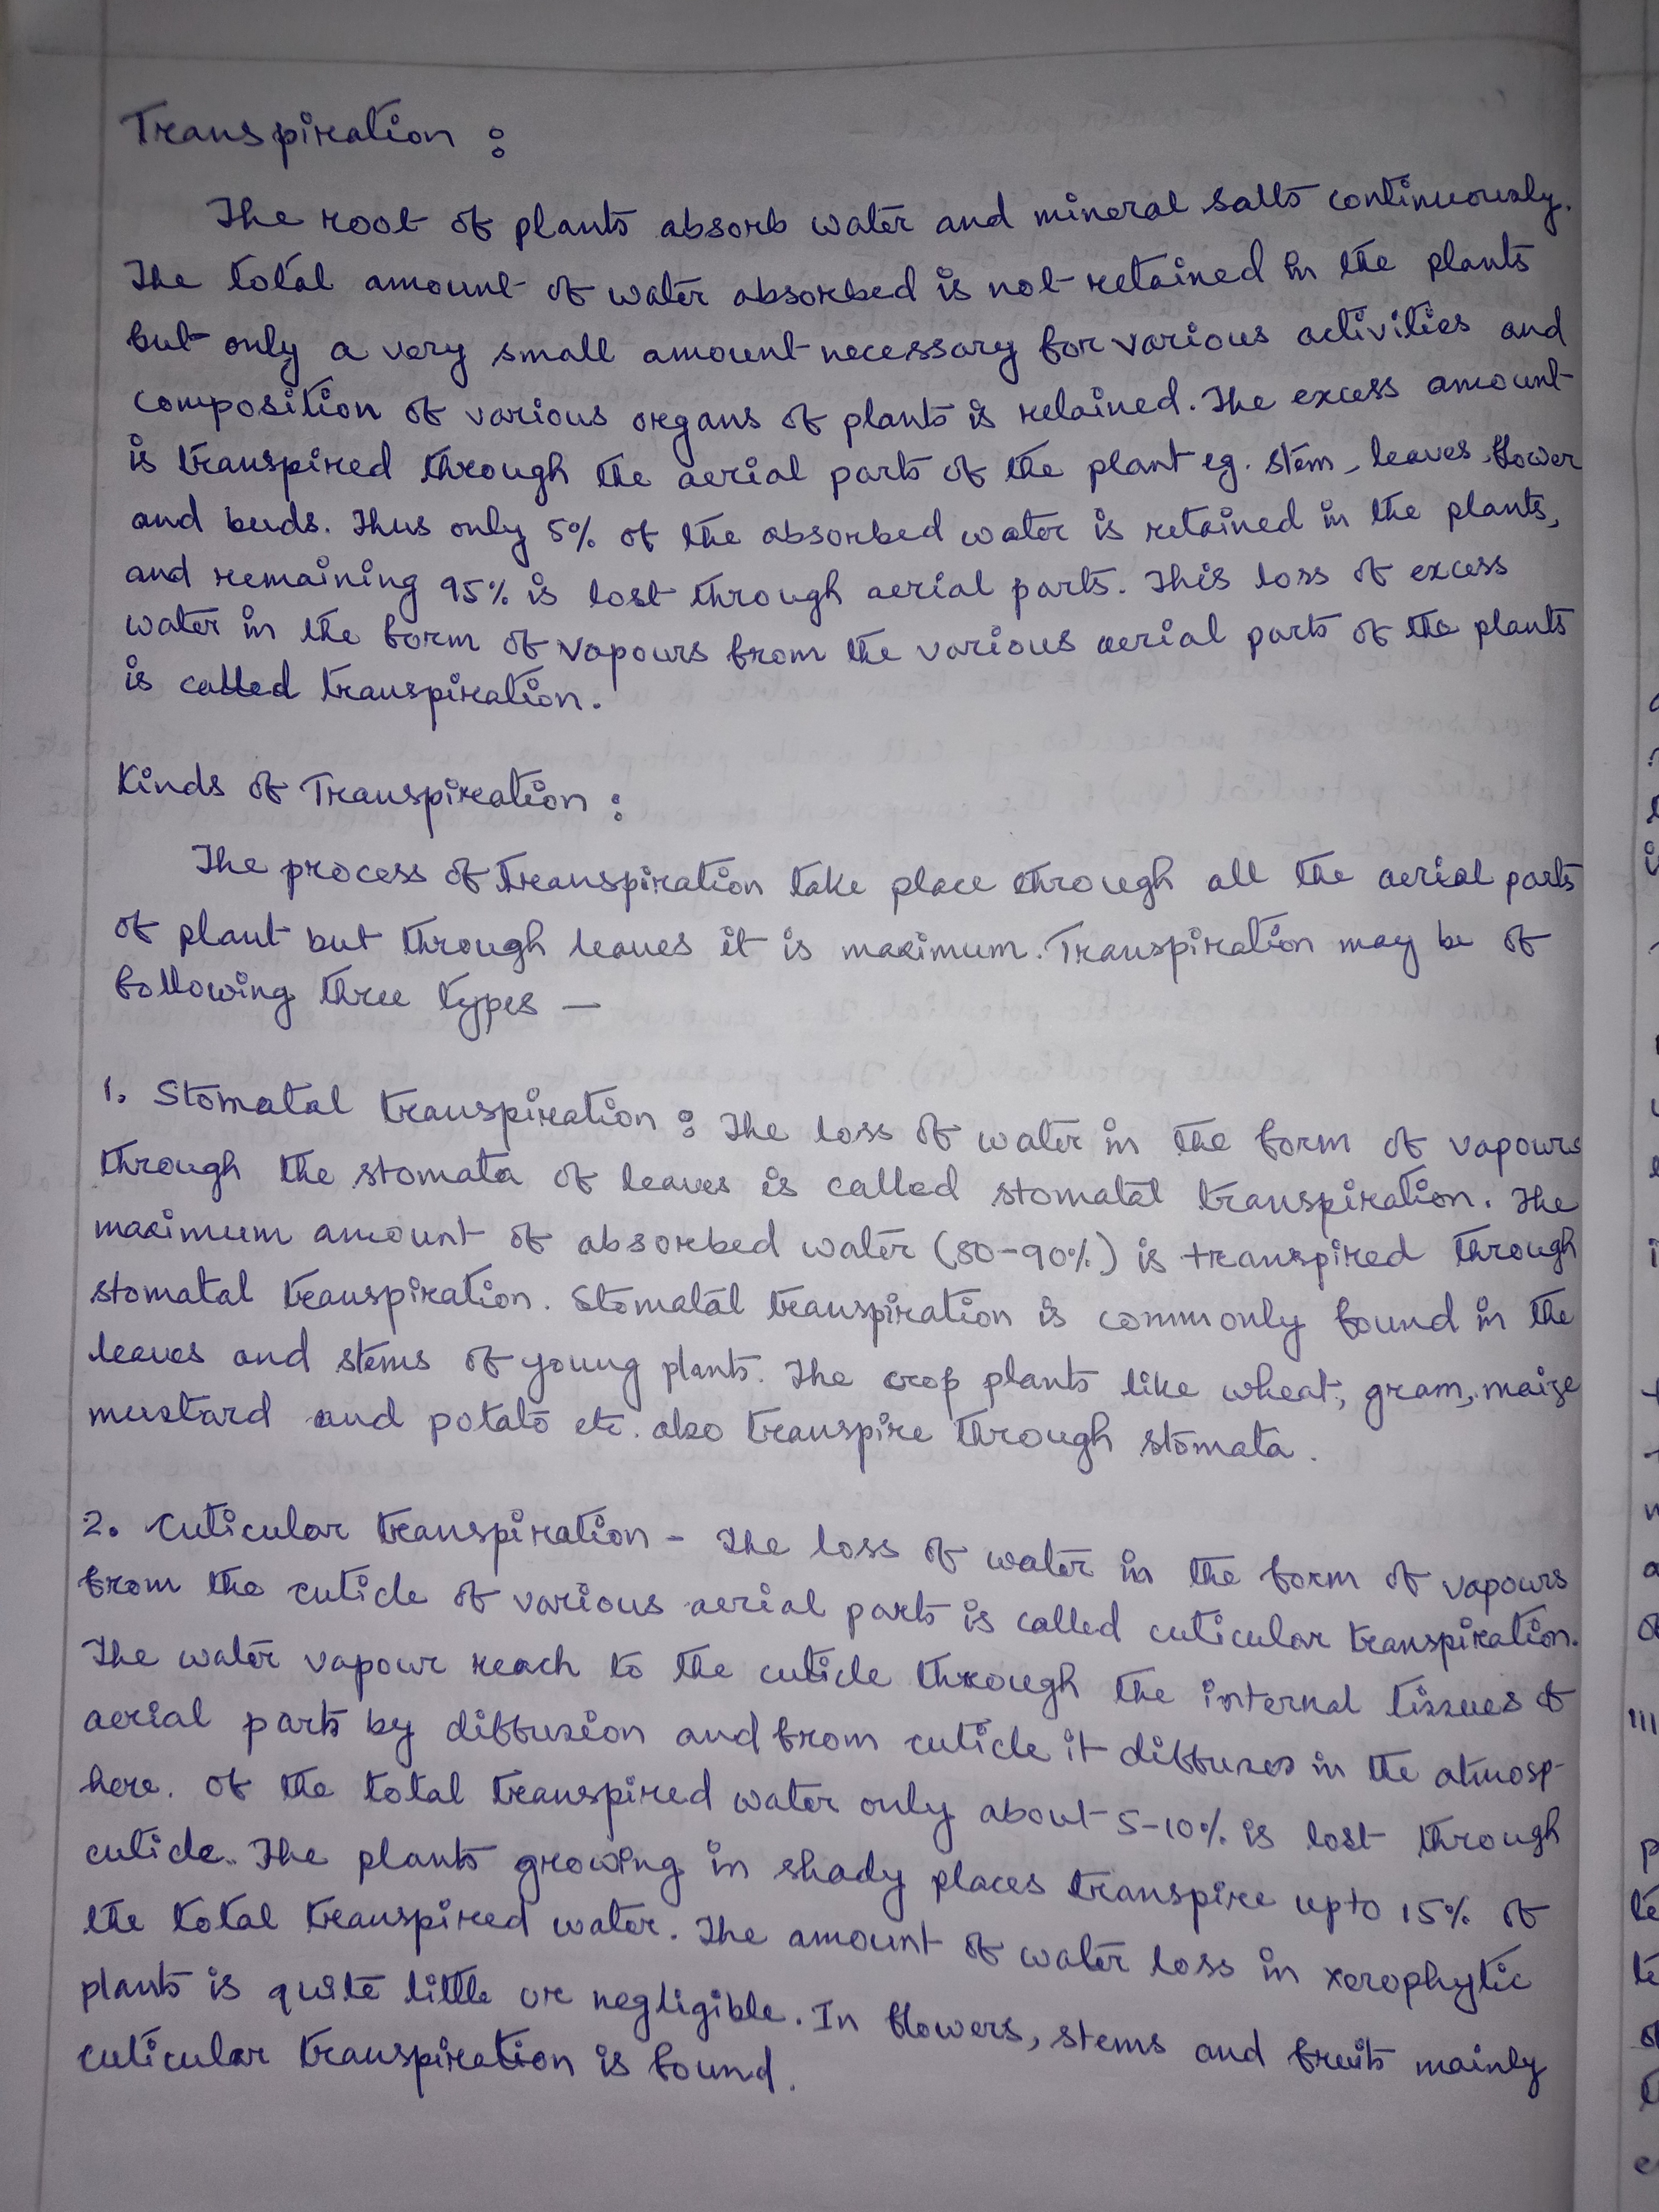 Transpiration :
The root of plants absorb water and mineral salts continuously.
The total amount of water absorbed is not retained in the plants
but only a very small amount necessary for various activities and
composition of various organs of plants is retained. The excess amount
is transpired through the aerial parts of the plant eg. stem, leaves, flower
and buds. Thus only 5% of the absorbed water is retained in the plants,
and remaining 95% is lost through aerial parts. This loss of excess
water in the form of vapours from the various aerial parts of the plants
is called transpiration.
Kinds of Transpiration :
The process of transpiration take place through all the aerial parts
of plant but through leaves it is maximum. Transpiration may be of
following three types —
1. Stomatal transpiration : The loss of water in the form of vapours
through the stomata of leaves is called stomatal transpiration. The
maximum amount of absorbed water (80-90%) is transpired through
stomatal transpiration. Stomatal transpiration is commonly found in the
leaves and stems of young plants. The crop plants like wheat, gram, maize
mustard and potato etc. also transpire through stomata.
2. Cuticular transpiration - The loss of water in the form of vapours
from the cuticle of various aerial parts is called cuticular transpiration.
The water vapour reach to the cuticle through the internal tissues of
aerial parts by diffusion and from cuticle it diffuses in the atmosp-
here. Of the total transpired water only about 5-10% is lost through
cuticle. The plants growing in shady places transpire upto 15% of
the total transpired water. The amount of water loss in xerophytic
plants is quite little or negligible. In flowers, stems and fruits mainly
cuticular transpiration is found.